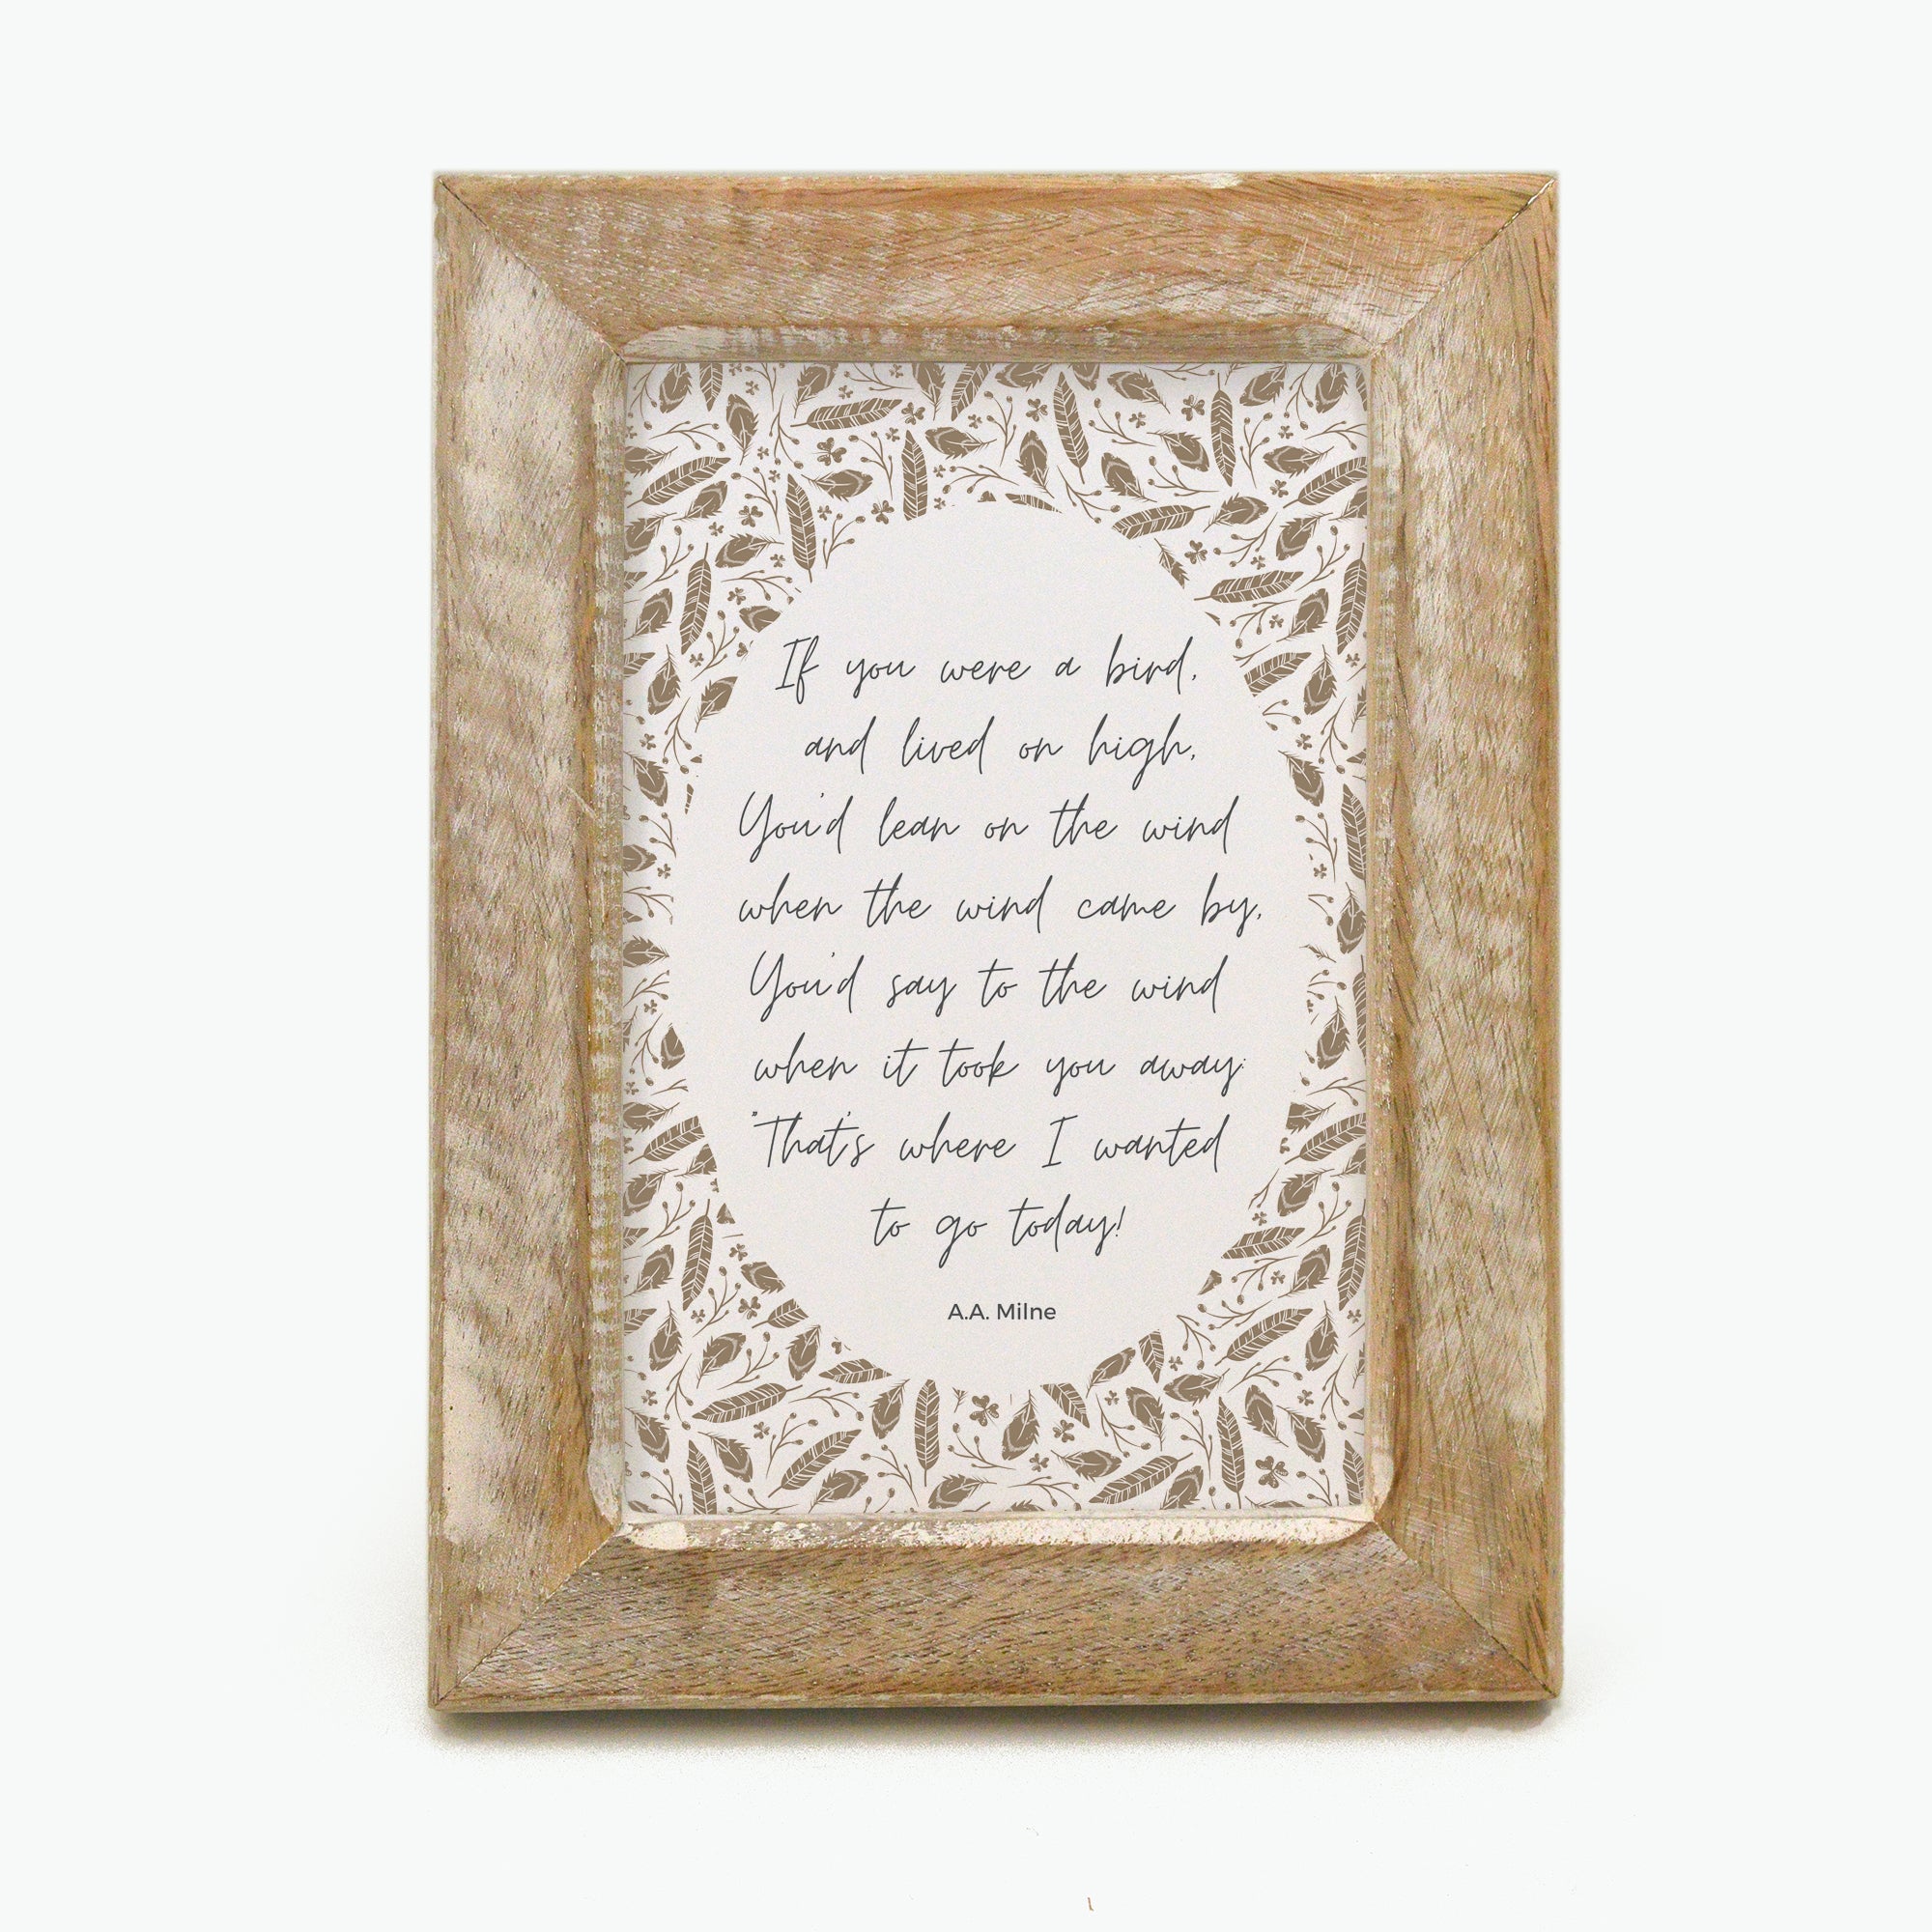 If you were a bird,
and lived on high,
You'd lean on the wind
when the wind came by,
You'd say to the wind
when it took you away:
"That's where I wanted
to go today!
A.A. Milne